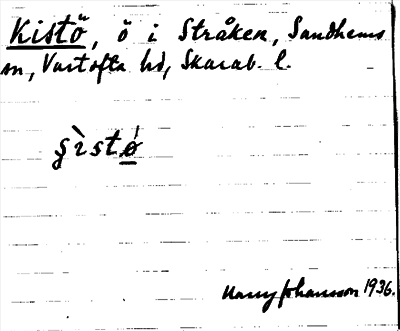 Kistö, ö i Stråken, Sandhems
sn, Vartofta hd, Skarab. l.
ʂìstǿ
Harry Johansson 1936.